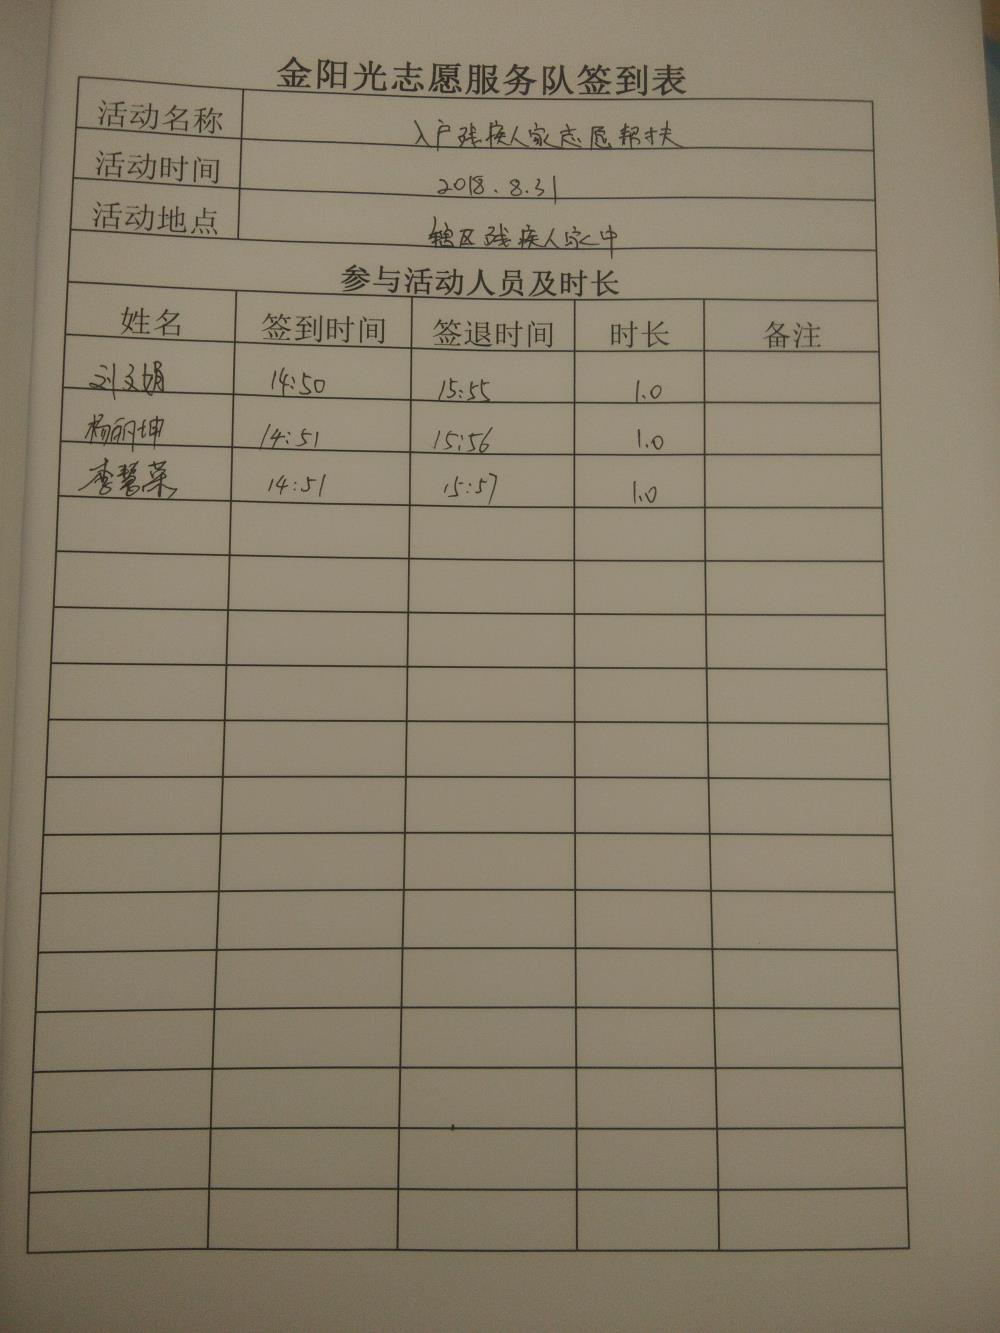 金阳光志愿服务队签到表
活动名称 入户残疾人家志愿帮扶
活动时间 2018.8.31
活动地点 辖区残疾人家中
参与活动人员及时长
姓名 签到时间 签退时间 时长 备注
刘文娟 14:50 15:55 1.0
杨丽坤 14:51 15:56 1.0
李慧荣 14:51 15:57 1.0